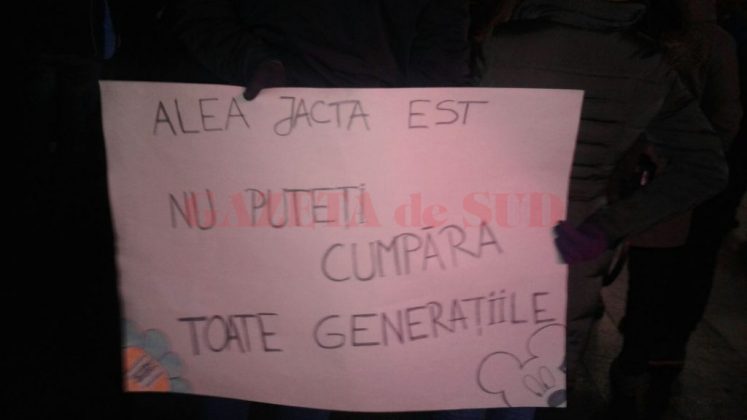 ALEA JACTA EST
NU PUTEȚI
GAZETA de SUD
CUMPĂRA
TOATE GENERAȚIILE